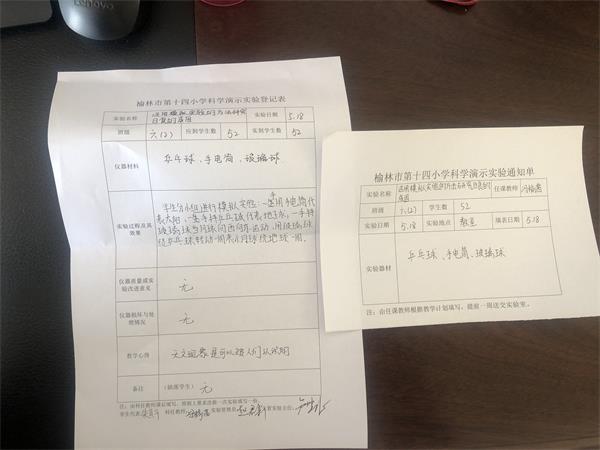 Lenovo
榆林市第十四小学科学演示实验登记表
实验名称
运用模拟实验的方法研究
日食的成因
实验日期
5.18
班级
六(2)
应到学生数
52
实到学生数
52
仪器材料
乒乓球、手电筒、玻璃球
实验过程及其
效果
学生分小组进行模拟实验:一生用手电筒代
表太阳,一生手持乒乓球代表地球,一手持
玻璃球当月球向西向东运动,用玻璃球
绕乒乓球转动一周表示月球绕地球一周。
仪器质量或实
验改进意见
无
仪器损坏与处
理情况
无
教学心得
天文现象是可以被人们认识的
备注
(缺席学生) 无
注:由科任教师课后填写,按照人要求活动一次实验填写一份。
学生代表:
科任教师:
实验管理员:
实验主任:
榆林市第十四小学科学演示实验通知单
实验名称
运用模拟实验的方法研究日食的
成因
任课教师
班级
六(2)
学生数
52
实验日期
5.18
实验地点
教室
填表日期
5.18
实验器材
乒乓球、手电筒、玻璃球
注:由任课教师根据教学计划填写,提前一周送交实验室。